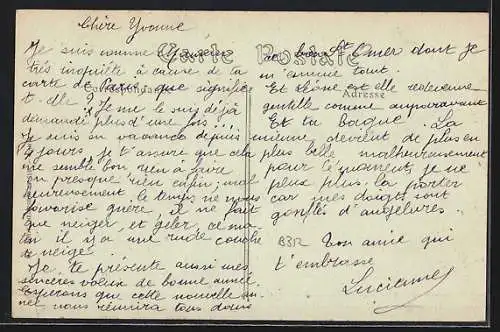 Chère Yvonne
Carte Postale
Correspondance
Adresse
Je suis comme Monsieur
très inquiète à cause de ta
carte de laro que signifit
t-elle ? Je me le suis déjà
demandé plus d'une fois
Je suis en vacances depuis
2 jours, je t'assure que cela
me semble bon rien à faire
en presque rien enfin; mal
heureusement le temps ne nous
favorise guère, il ne fait
que neiger, et geler, ce ma
tin il y a une rude couche
de neige.
Je te présente aussi mes
sincères voeux de bonne année.
Espérons que cette nouvelle an
née nous réunira tous dans
ce bon St Omer dont je
m'ennuie tant.
Et Léone est elle redevenue
gentille comme auparavant
Et ta Bague. La
mienne devient de plus en
plus belle malheureusement
pour le moment je ne
peux plus la porter
car mes doigts sont
gonflés d'angelures.
B3R
Ton amie qui
t'embrasse
Lucienne